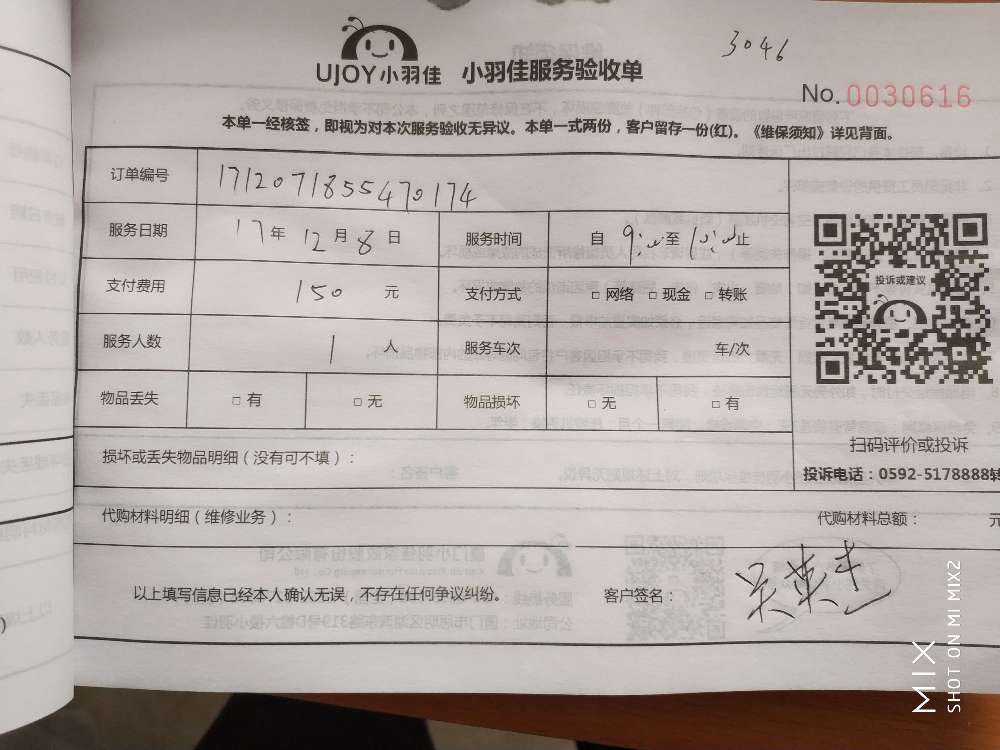 3046
UJOY小羽佳 小羽佳服务验收单
No.0030616
本单一经核签，即视为对本次服务验收无异议。本单一式两份，客户留存一份(红)。《维保须知》详见背面。
订单编号 1712071855470174
服务日期 17年12月8日 服务时间 自 9:00至10:00止
支付费用 150 元 支付方式 □ 网络 □ 现金 □ 转账
投诉或建议
服务人数 1 人 服务车次 车/次
物品丢失 □ 有 □ 无 物品损坏 □ 无 □ 有
扫码评价或投诉
损坏或丢失物品明细（没有可不填）：
投诉电话：0592-5178888转
代购材料明细（维修业务）： 代购材料总额： 元
以上填写信息已经本人确认无误，不存在任何争议纠纷。 客户签名：
MIX
SHOT ON MI MIX2